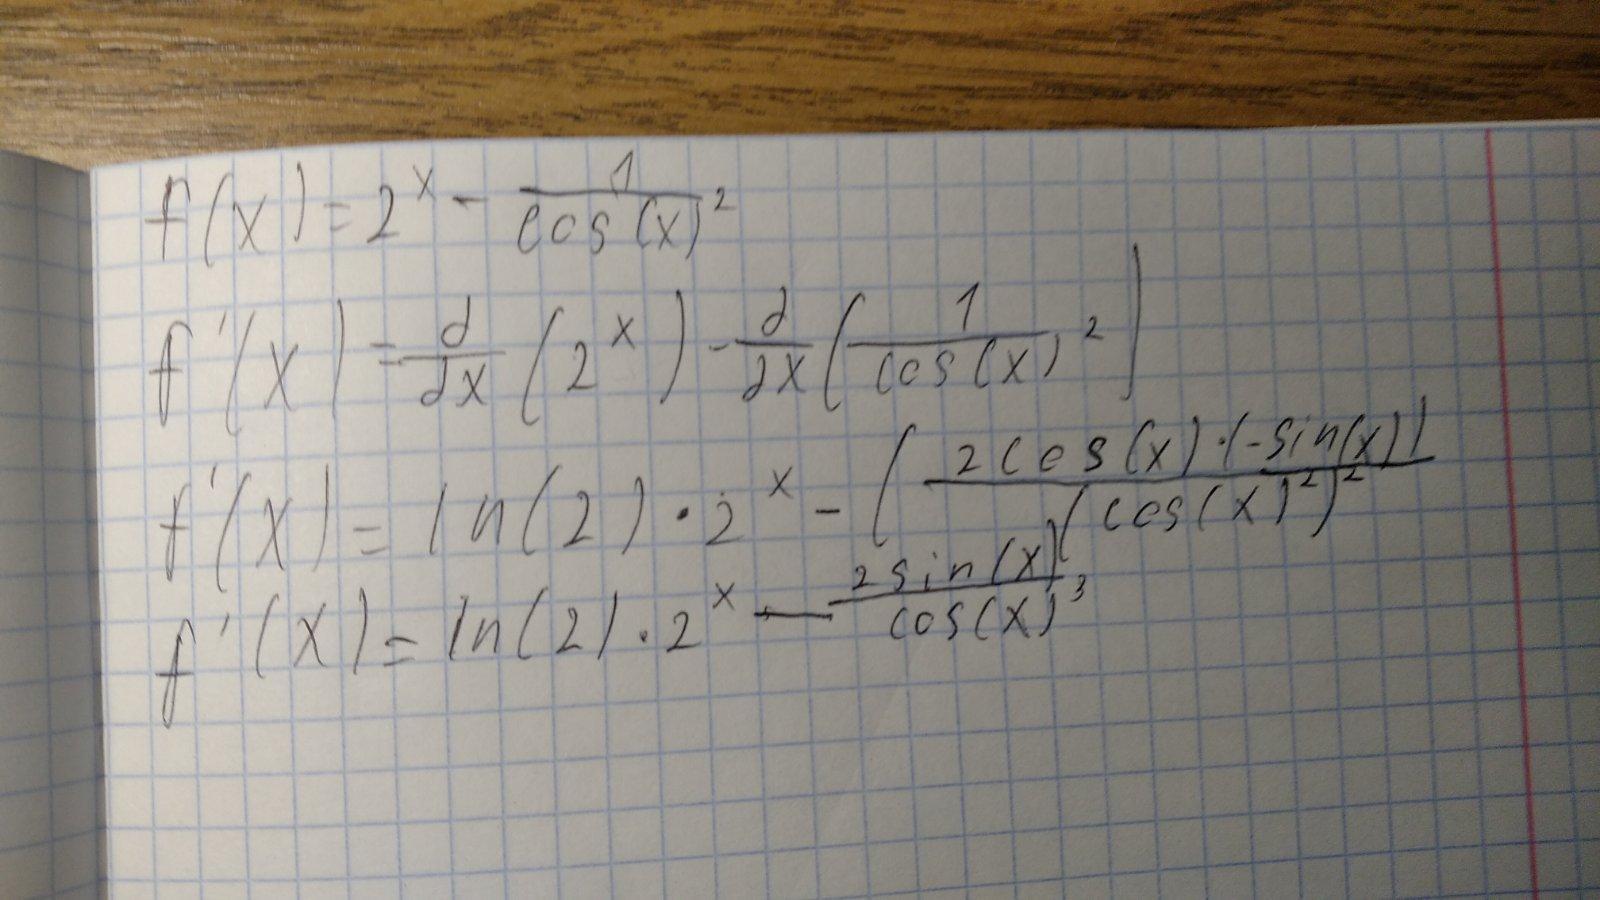 f(x) = 2^x - 1/cos(x)^2
f'(x) = d/dx (2^x) - d/dx (1/cos(x)^2)
f'(x) = ln(2) · 2^x - (2cos(x)·(-sin(x))/(cos(x)^2)^2
f'(x) = ln(2) · 2^x - 2sin(x)/cos(x)^3